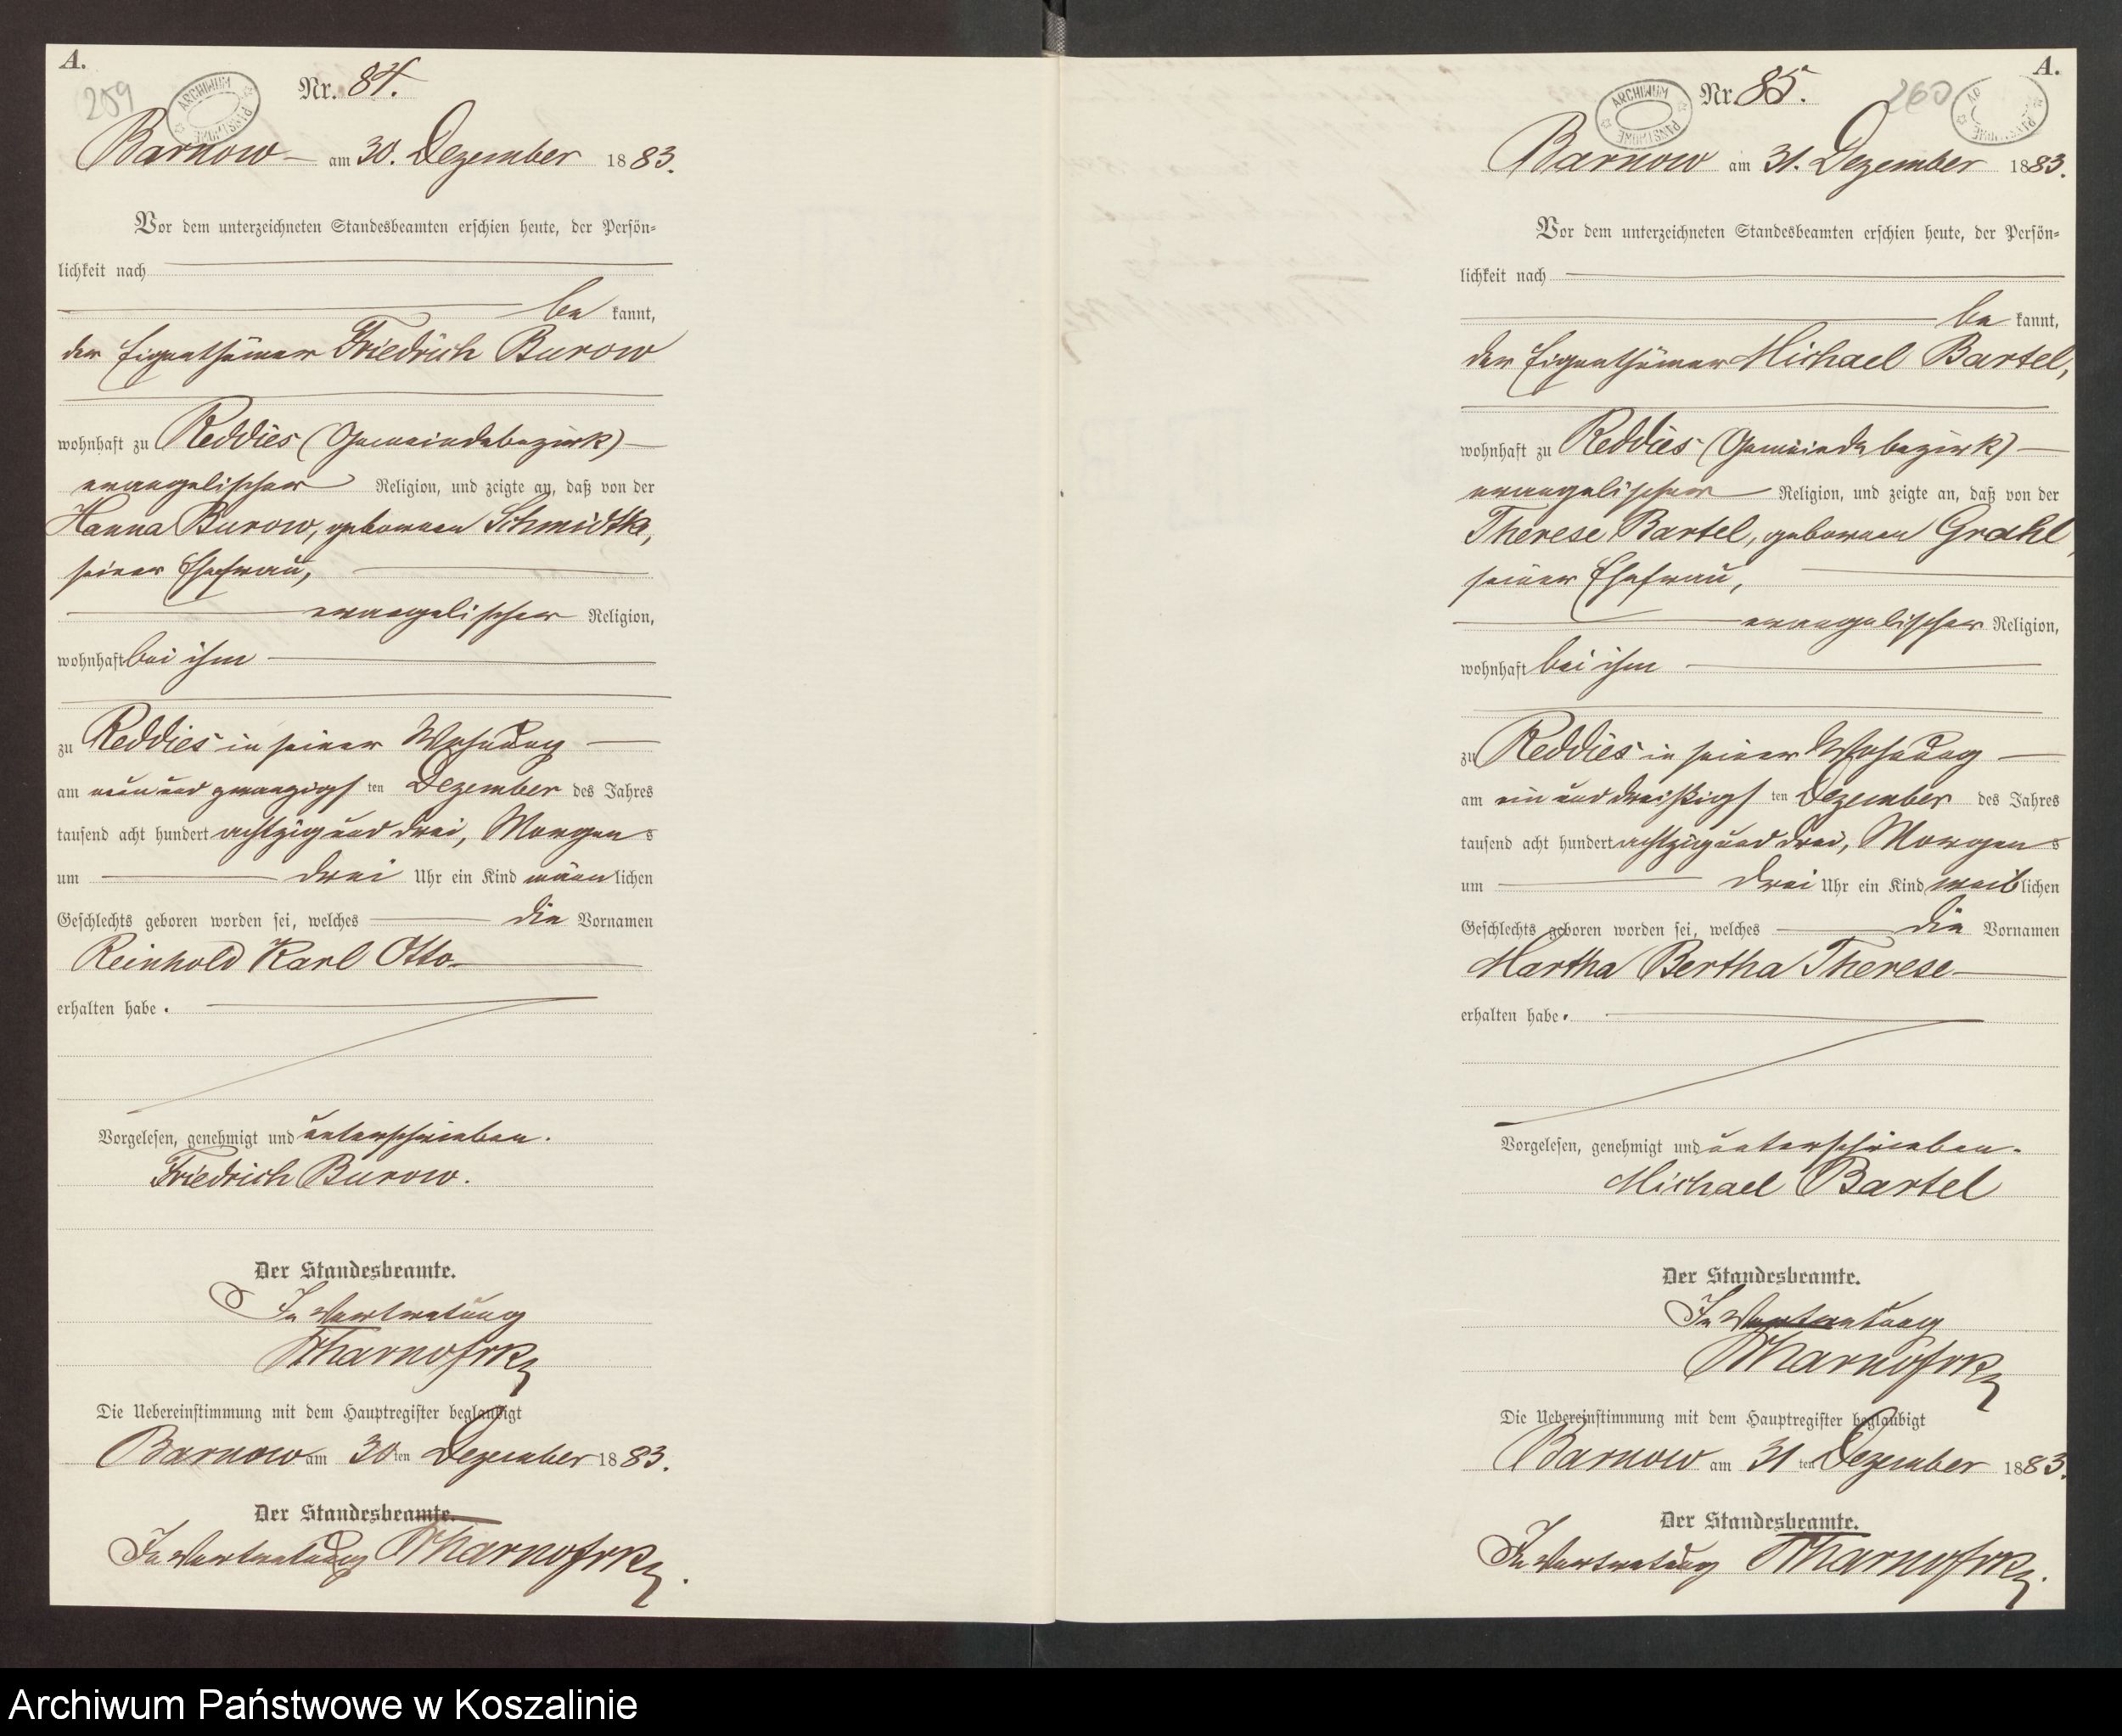 A.
259
ARCHIWUM PAŃSTWOWE
Nr. 84.
Barnow am 30. Dezember 1883.
Vor dem unterzeichneten Standesbeamten erschien heute, der Persön-
lichkeit nach
be kannt,
der Eigenthümer Friedrich Burow
wohnhaft zu Reddies (Gemeindebezirk)
evangelischer Religion, und zeigte an, daß von der
Hanna Burow, gebornen Schmidtke,
seiner Ehefrau,
evangelischer Religion,
wohnhaft bei ihm
zu Reddies in seiner Wohnung
am neun und zwanzigsten Dezember des Jahres
tausend acht hundert achtzig und drei, Morgens
um drei Uhr ein Kind männlichen
Geschlechts geboren worden sei, welches die Vornamen
Reinhold Karl Otto
erhalten habe.
Vorgelesen, genehmigt und unterschrieben.
Friedrich Burow.
Der Standesbeamte.
In Vertretung
Die Uebereinstimmung mit dem Hauptregister beglaubigt
Barnow am 30ten Dezember 1883.
Der Standesbeamte.
In Vertretung
A.
260
ARCHIWUM PAŃSTWOWE
Nr. 85.
Barnow am 31. Dezember 1883.
Vor dem unterzeichneten Standesbeamten erschien heute, der Persön-
lichkeit nach
be kannt,
der Eigenthümer Michael Bartel,
wohnhaft zu Reddies (Gemeindebezirk)
evangelischer Religion, und zeigte an, daß von der
Therese Bartel, gebornen Grahl,
seiner Ehefrau,
evangelischer Religion,
wohnhaft bei ihm
zu Reddies in seiner Wohnung
am ein und dreißigsten Dezember des Jahres
tausend acht hundert achtzig und drei, Morgens
um drei Uhr ein Kind weiblichen
Geschlechts geboren worden sei, welches die Vornamen
Martha Bertha Therese
erhalten habe.
Vorgelesen, genehmigt und unterschrieben.
Michael Bartel
Der Standesbeamte.
In Vertretung
Die Uebereinstimmung mit dem Hauptregister beglaubigt
Barnow am 31ten Dezember 1883.
Der Standesbeamte.
In Vertretung
Archiwum Państwowe w Koszalinie